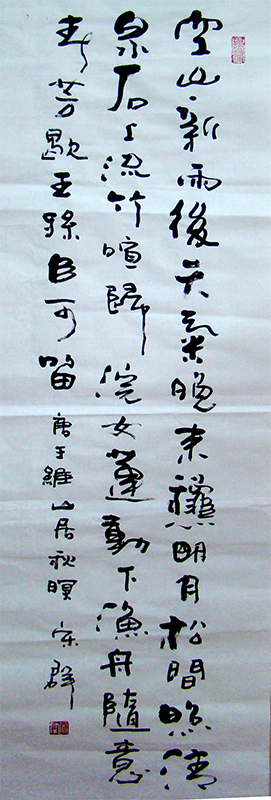 空山新雨後天氣晚來龝明月松間照清
泉石上流竹喧歸浣女蓮動下漁舟隨意
春芳歇王孫自可留 唐王維山居秋暝 宋群